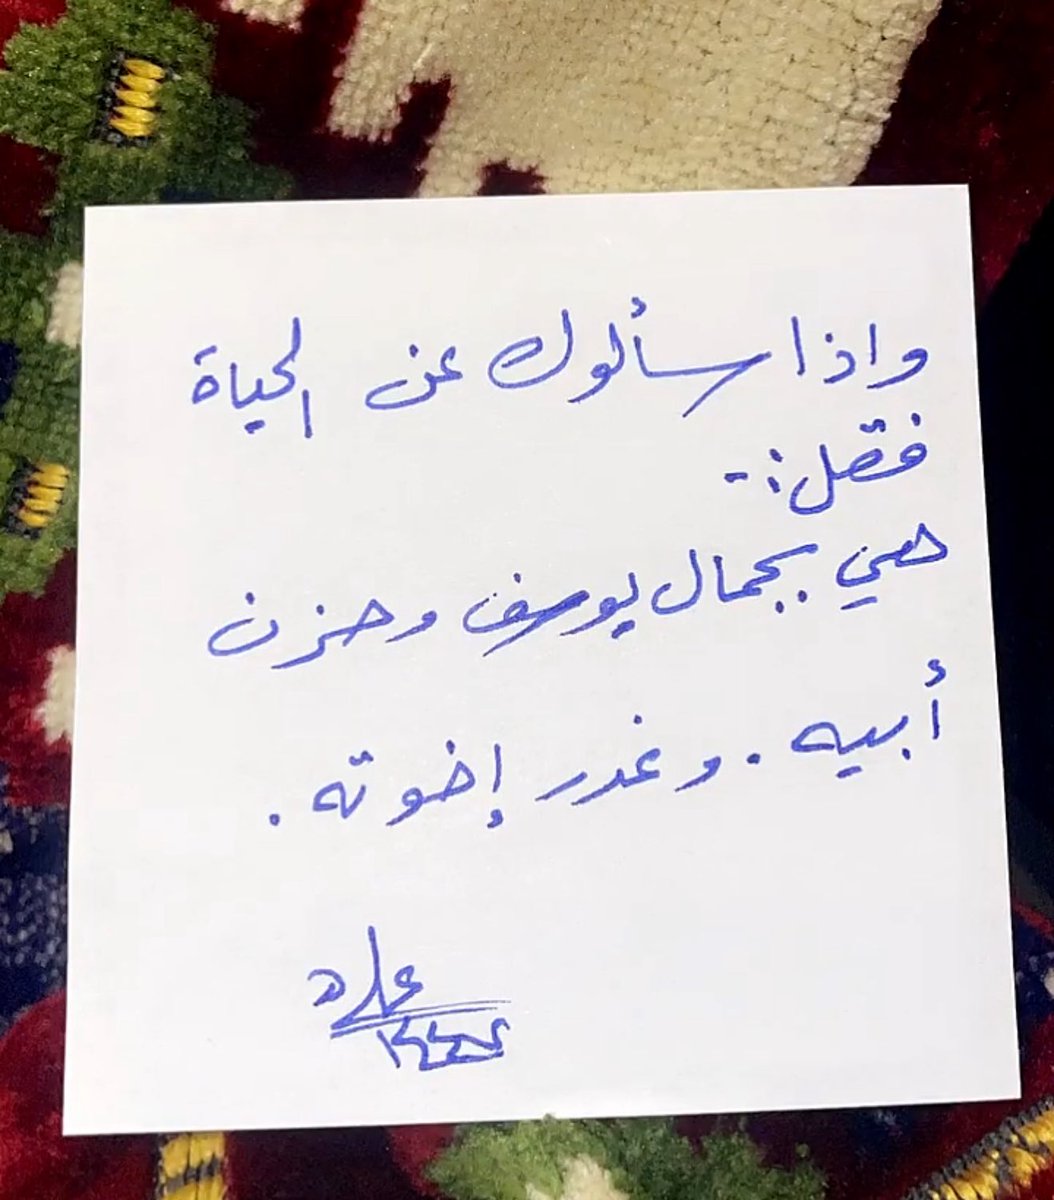 واذا سألوك عن الحياة
فقل :-
هي بجمال يوسف وحزن
أبيه . وغدر إخوته .